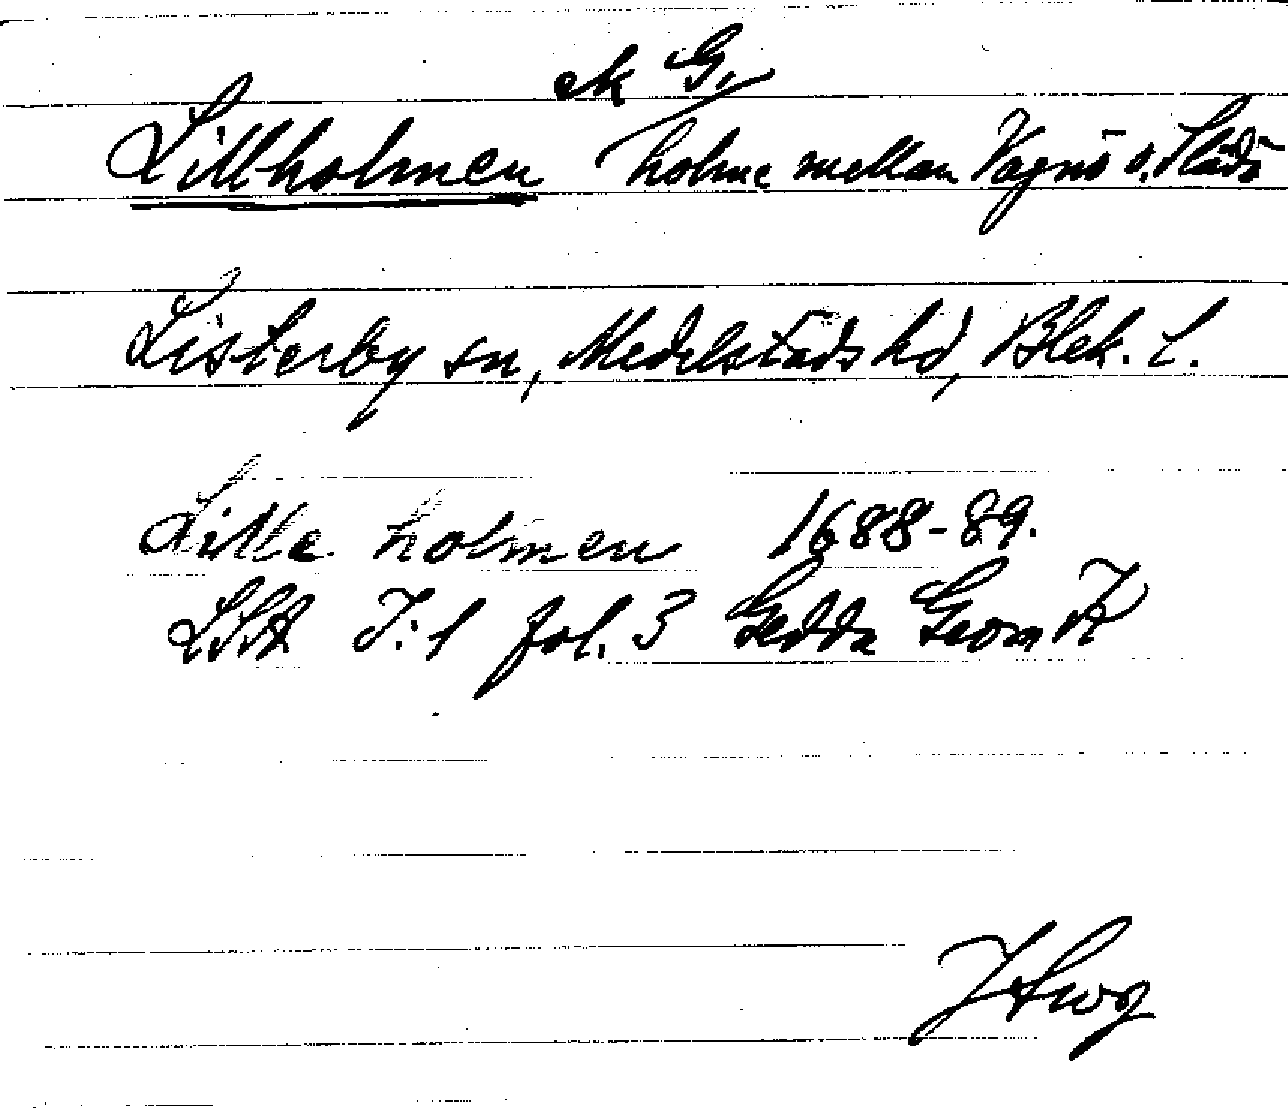 ek G.
Lillholmen holme mellan Vagnö o. Slädö
Listerby sn, Medelstads hd, Blek. l.
Lille holmen 1688-89.
LSA I:1 fol. 3 Gedda Geom K